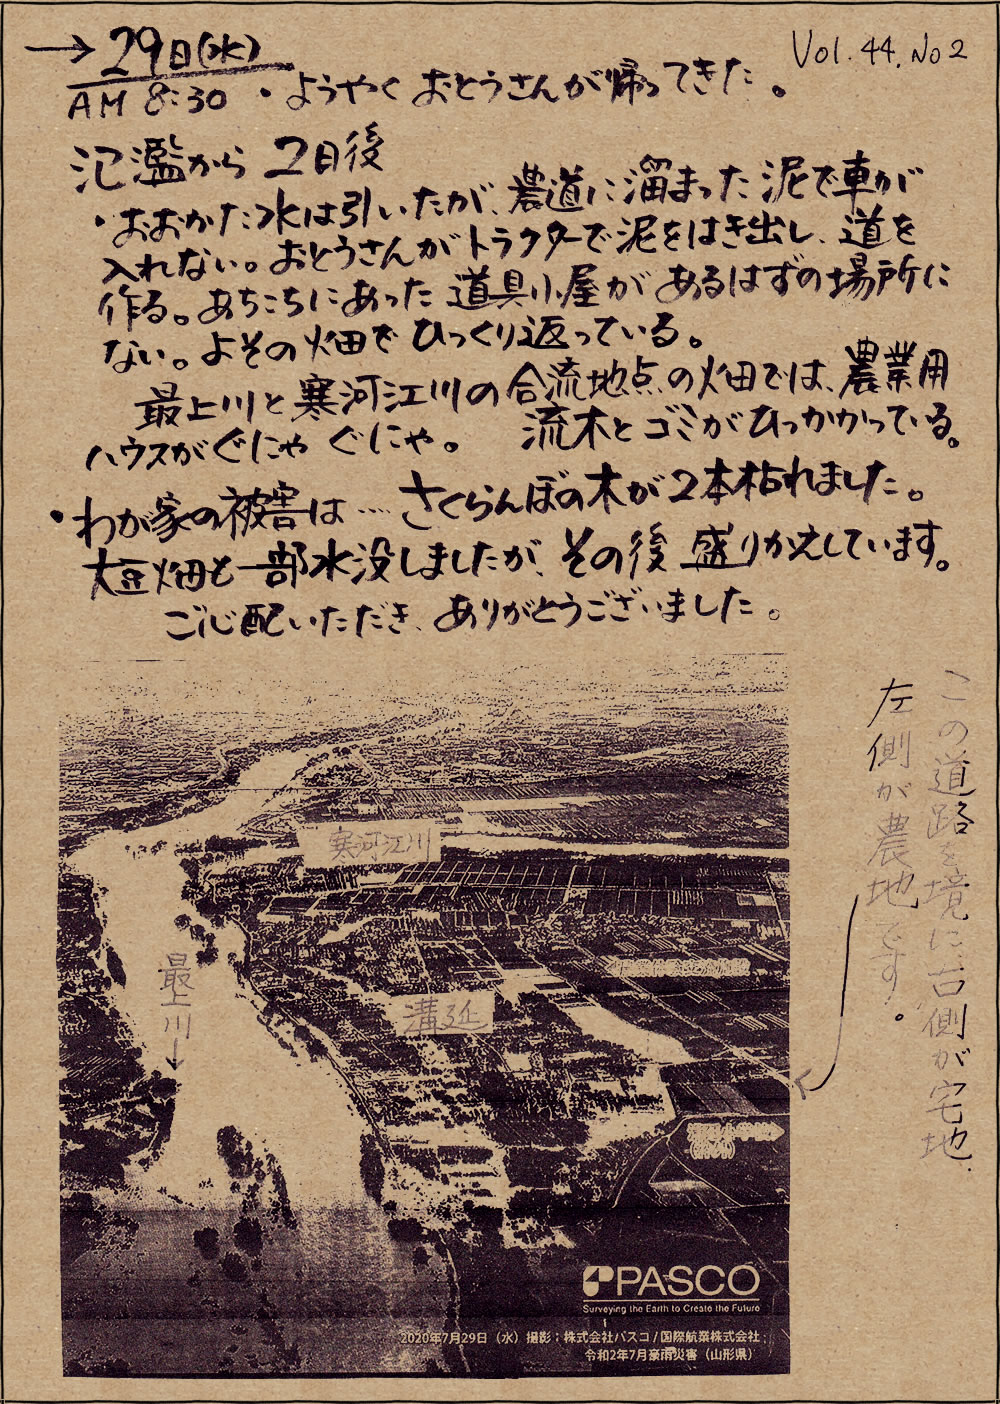 →29日(水)
Vol.44.No2
AM 8:30 ・ようやく おとうさんが帰ってきた。
氾濫から 2日後
・おおかた水は引いたが、農道に溜まった泥で車が
入れない。おとうさんがトラクターで泥をはき出し、道を
作る。あちこちにあった道具小屋があるはずの場所に
ない。よその畑でひっくり返っている。
最上川と寒河江川の合流地点の畑では、農業用
ハウスがぐにゃぐにゃ。流木とゴミがひっかかっている。
・わが家の被害は…さくらんぼの木が2本枯れました。
大豆畑も一部水没しましたが、その後 盛りかえしています。
ご心配いただき、ありがとうございました。
この道路を境に、右側が宅地、
左側が農地です。
寒河江川
最上川→
溝延
PASCO
Surveying the Earth to Create the Future
2020年7月29日（水）撮影：株式会社パスコ/国際航業株式会社
令和2年7月豪雨災害（山形県）